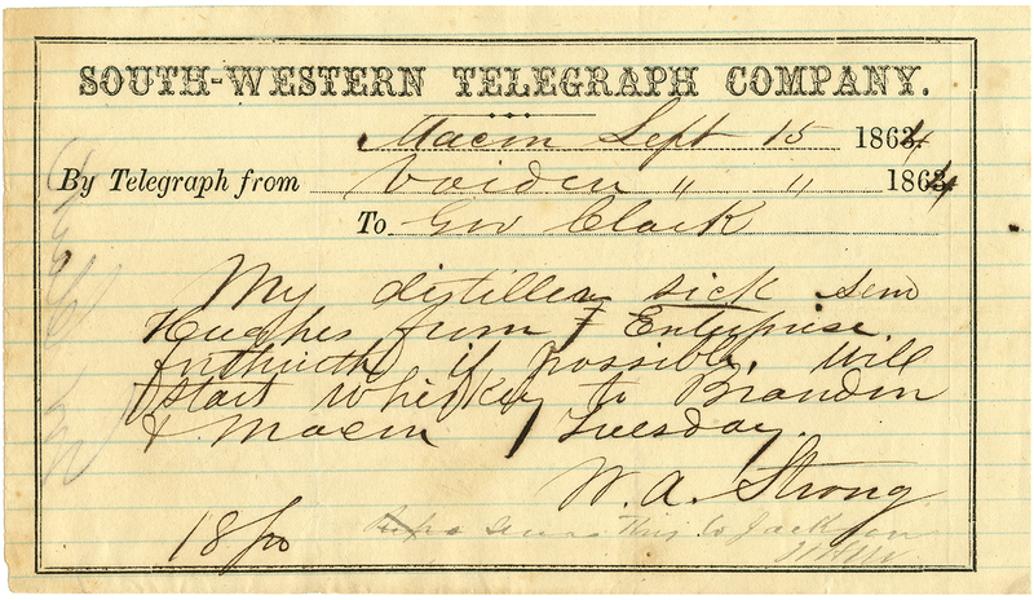 SOUTH-WESTERN TELEGRAPH COMPANY.
Macon Sept 15 1864
By Telegraph from Vaiden " " 1864
To Gov Clark
My distiller sick send
Hughes from Enterprise
forthwith if possible, Will
start whiskey to Brandon
& Macon Tuesday.
W. A. Strong
18/
this to Jackson